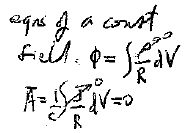 eqns of a const
field. φ = ∫ ρ⁰/R dV
A̅ = 1/c ∫ j⁰/R dV = 0